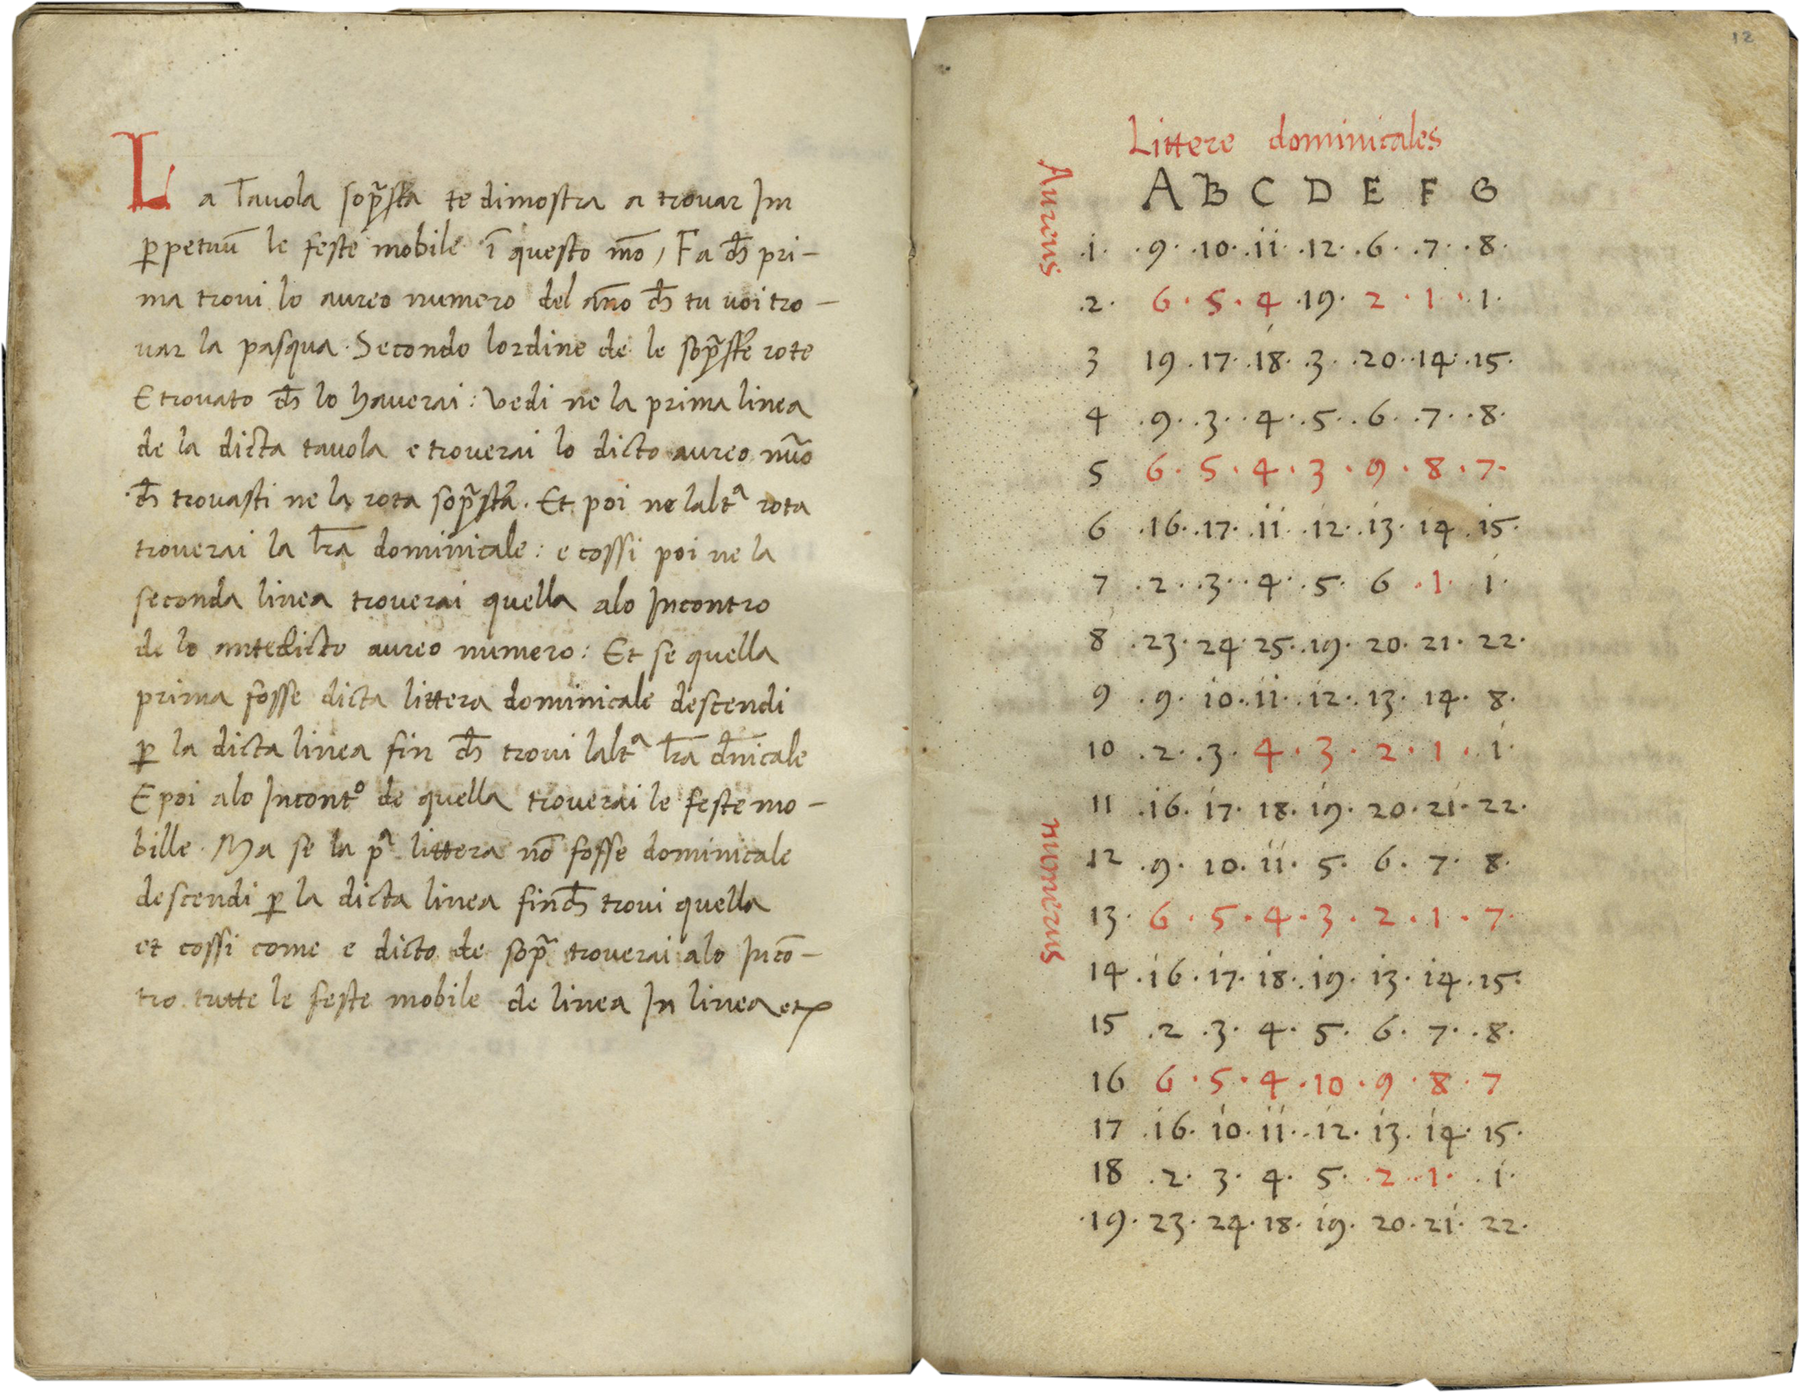 La Tavola sop̃sta te dimostra a trovar In
ꝑpetuũ le feste mobile ĩ questo mõ, Fa cħ pri-
ma trovi lo aureo numero del ãno cħ tu voi tro-
var la pasqua. Secondo lordine de le sop̃ste rote
E trovato cħ lo haverai: Vedi ne la prima linea
de la dicta tavola e troverai lo dicto aureo nũo
cħ trovasti ne la rota sop̃sta. Et poi ne laltᵃ rota
troverai la lr̃a dominicale: e cossi poi ne la
seconda linea troverai quella alo Incontro
de lo antedicto aureo numero: Et se quella
prima fosse dicta littera dominicale descendi
ꝑ la dicta linea fin cħ trovi laltᵃ lr̃a dñicale
E poi alo Incontº de quella troverai le feste mo-
bille. Ma se la pᵃ littera nõ fosse dominicale
descendi ꝑ la dicta linea fincħ trovi quella
et cossi come e dicto de sop̃ troverai alo Incõ-
tro tutte le feste mobile de linea In linea etc
12
Littere dominicales
Aureus
A B C D E F G
.1. .9. .10. .11. .12. .6. .7. .8.
.2. 6 . 5 . 4 .19. 2 . 1 . .1.
3 19 .17. .18. .3. .20. .14. .15.
4 .9. .3. .4. .5. .6. .7. .8.
5 6 . 5 . 4 . 3 . 9 . 8 . 7.
6 .16. .17. .11. .12. .13. 14 .15.
7 .2. .3. .4. .5. 6 .1. 1.
8 .23. 24. 25. .19. 20. 21. 22.
9 .9. 10. .11. .12. .13. 14. 8.
10 .2. .3. 4 . 3 . 2 . 1 . 1.
11 .16. 17. 18. 19. 20. 21. 22.
numerus
12 .9. 10. 11. 5. 6. 7. 8.
13. 6 . 5 . 4 . 3 . 2 . 1 . 7.
14 .16. 17. 18. .19. 13. 14. 15.
15 .2 .3. 4. 5. 6. 7. .8.
16 6 . 5 . 4 . 10 . 9 . 8 . 7
17 .16. 10. 11. .12. 13. 14. 15.
18 .2. 3. 4. 5. .2. .1. .1.
.19. 23. 24. 18. 19. 20. 21. 22.